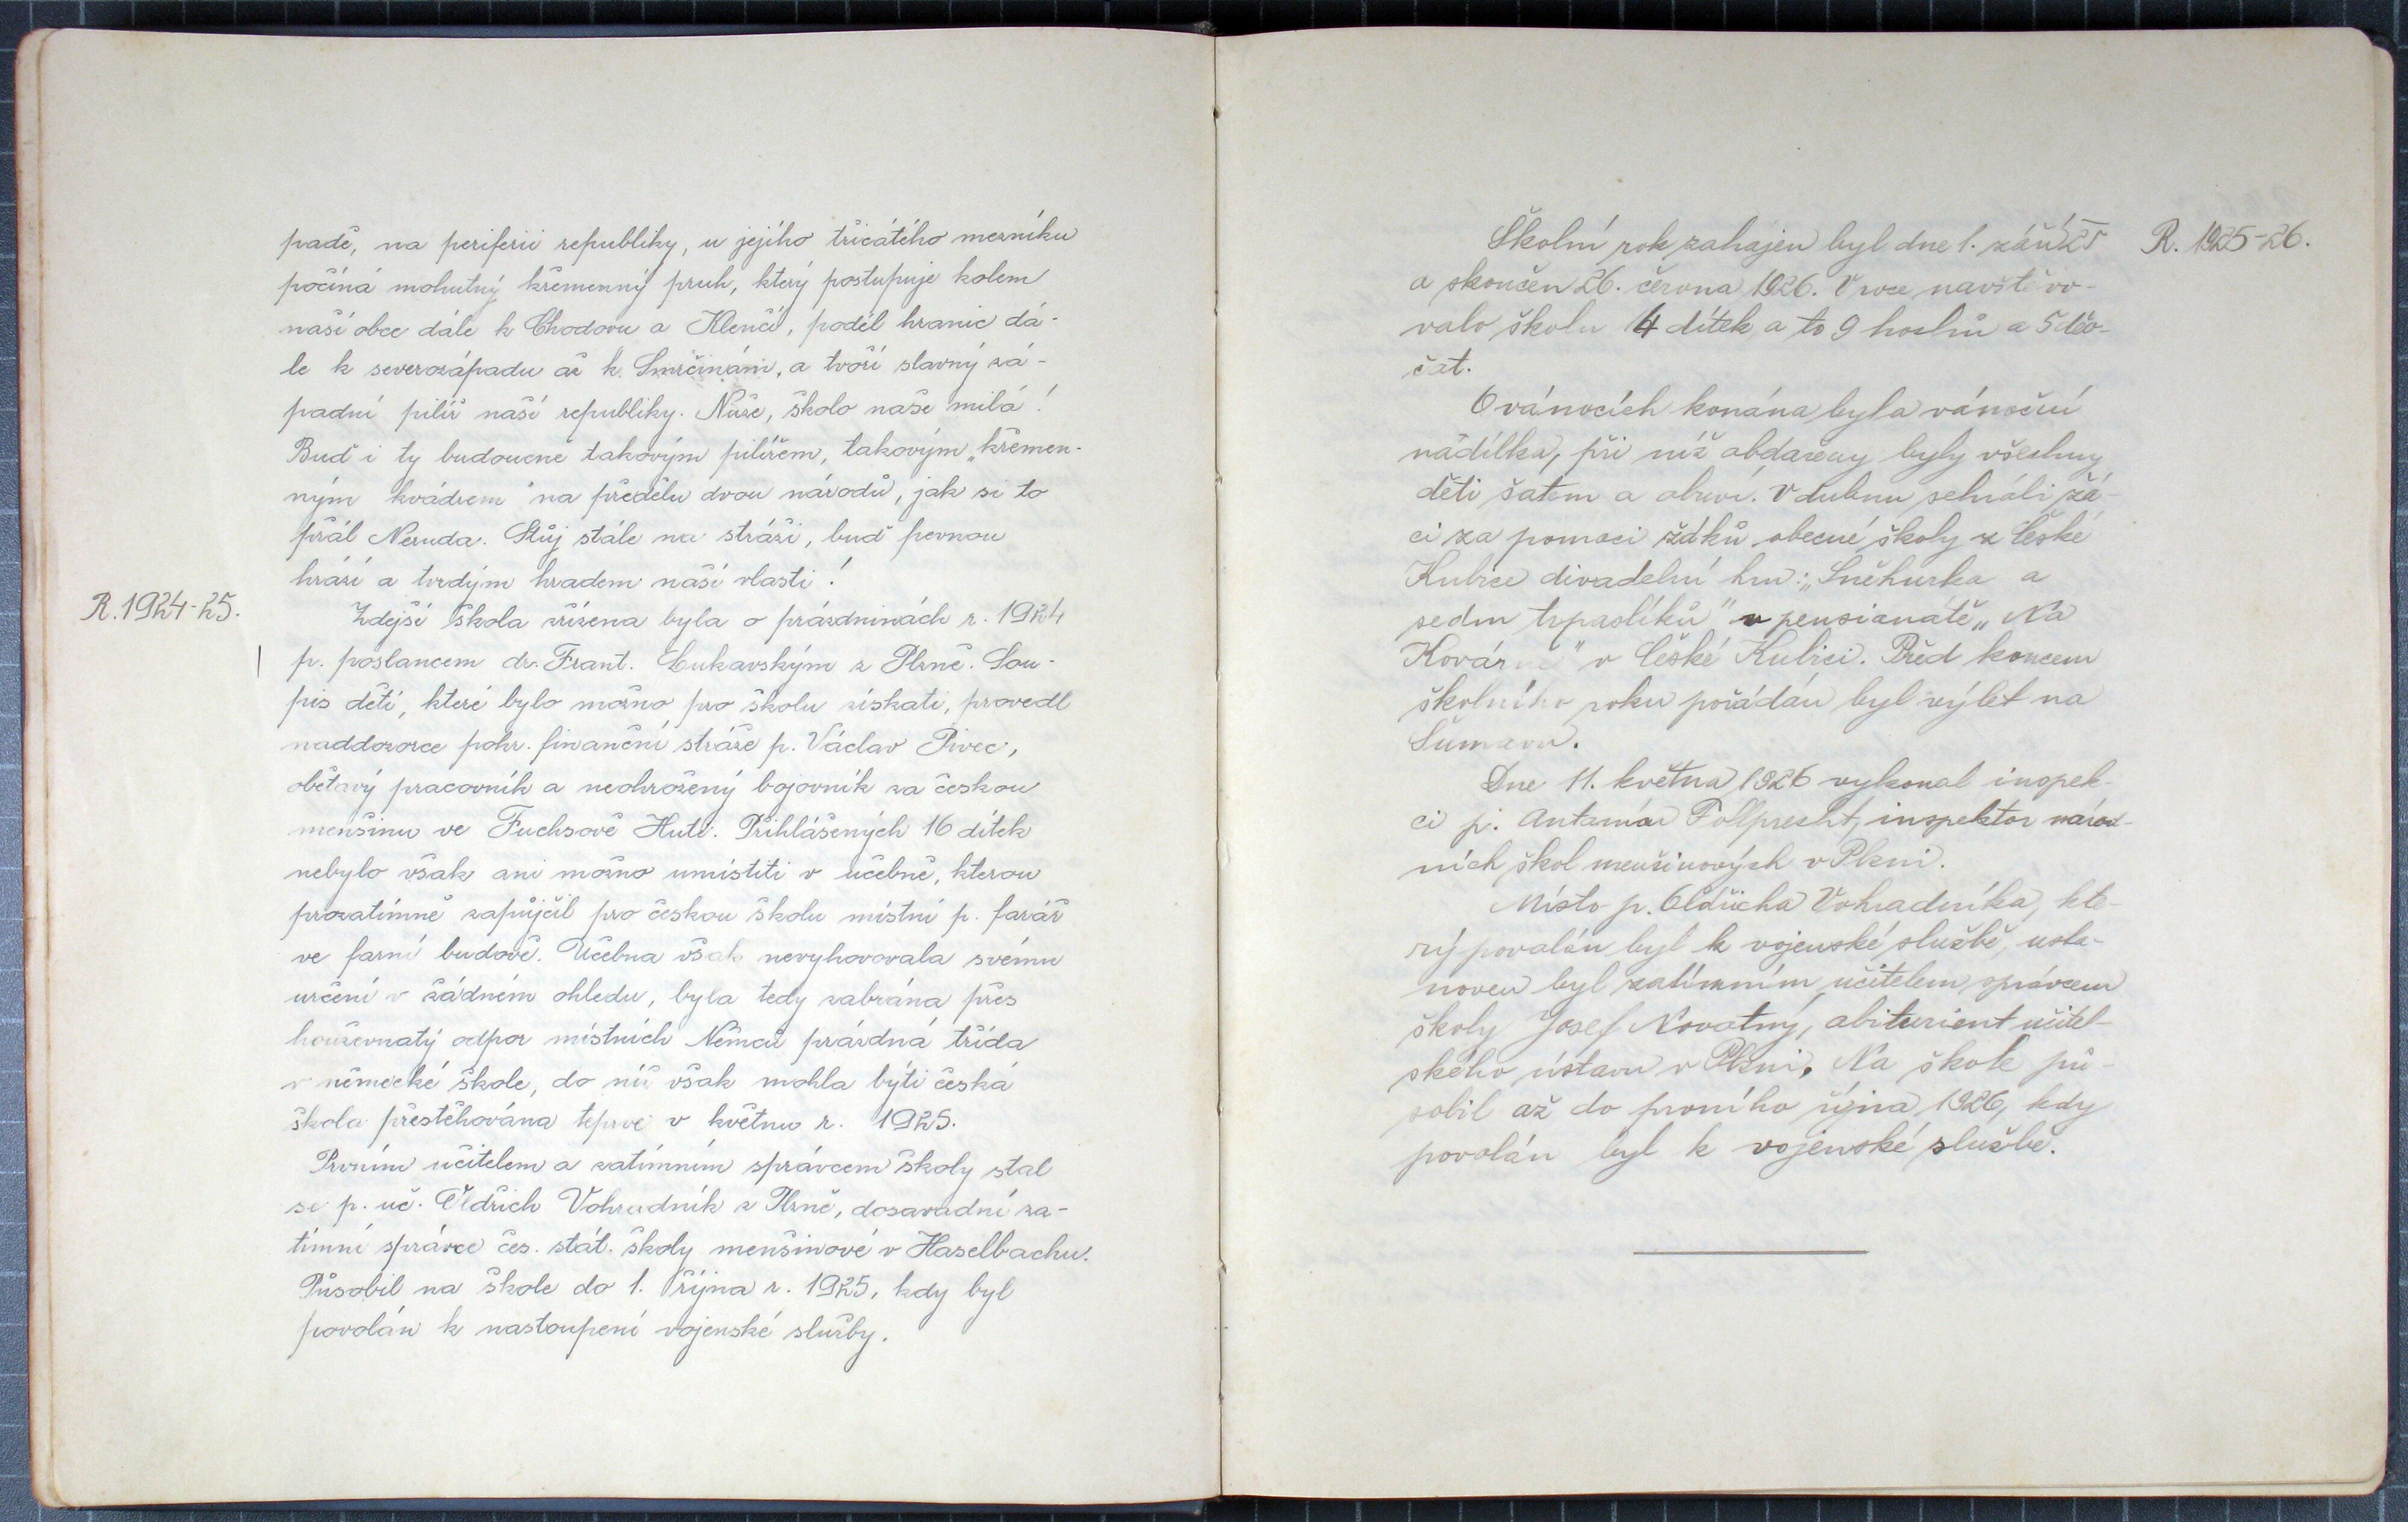 padě, na periferii republiky, u jejího třicátého mezníku
počíná mohutný křemenný pruh, který postupuje kolem
naší obce dále k Chodovu a Klenčí, podél hranic dá-
le k severozápadu až k Smrčinám, a tvoří slavný zá-
padní pilíř naší republiky. Nuže, školo naše milá!
Buď i ty budoucně takovým pilířem, takovým „křemen-
ným kvádrem" na předělu dvou národů, jak si to
přál Neruda. Stůj stále na stráži, buď pevnou
hrází a tvrdým hradem naší vlasti!
R. 1924-25.
Zdejší škola zřízena byla o prázdninách r. 1924
p. poslancem dr. Frant. Lukavským z Plzně. Sou-
pis dětí, které bylo možno pro školu získati, provedl
naddozorce pohr. finanční stráže p. Václav Pivec,
obětavý pracovník a neohrožený bojovník za českou
menšinu ve Fuchsově Huti. Přihlášených 16 dítek
nebylo však ani možno umístiti v učebně, kterou
prozatímně zapůjčil pro českou školu místní p. farář
ve farní budově. Učebna však nevyhovovala svému
určení v žádném ohledu, byla tedy zabrána přes
houževnatý odpor místních Němců prázdná třída
v německé škole, do níž však mohla býti česká
škola přestěhována teprve v květnu r. 1925.
Prvním učitelem a zatímním správcem školy stal
se p. uč. Oldřich Vohradník z Plzně, dosavadní za-
tímní správce čes. stát. školy menšinové v Haselbachu.
Působil na škole do 1. října r. 1925, kdy byl
povolán k nastoupení vojenské služby.
R. 1925-26.
Školní rok zahájen byl dne 1. září 25
a skončen 26. června 1926. V roce navštěvo-
valo školu 14 dítek a to 9 hochů a 5 děv-
čat.
O vánocích konána byla vánoční
nadílka, při níž obdařeny byly všechny
děti šatem a obuví. V dubnu sehráli žá-
ci za pomoci žáků obecné školy z České
Kubice divadelní hru: „Sněhurka a
sedm trpaslíků" v pensionátě „Na
Kovárně" v České Kubici. Před koncem
školního roku pořádán byl výlet na
Šumavu.
Dne 11. května 1926 vykonal inspek-
ci p. Antonín Follprecht, inspektor národ-
ních škol menšinových v Plzni.
Místo p. Oldřicha Vohradníka, kte-
rý povolán byl k vojenské službě, usta-
noven byl zatímním učitelem správcem
školy Josef Novotný, abiturient učitel-
ského ústavu v Plzni. Na škole pů-
sobil až do prvního října 1926, kdy
povolán byl k vojenské službě.